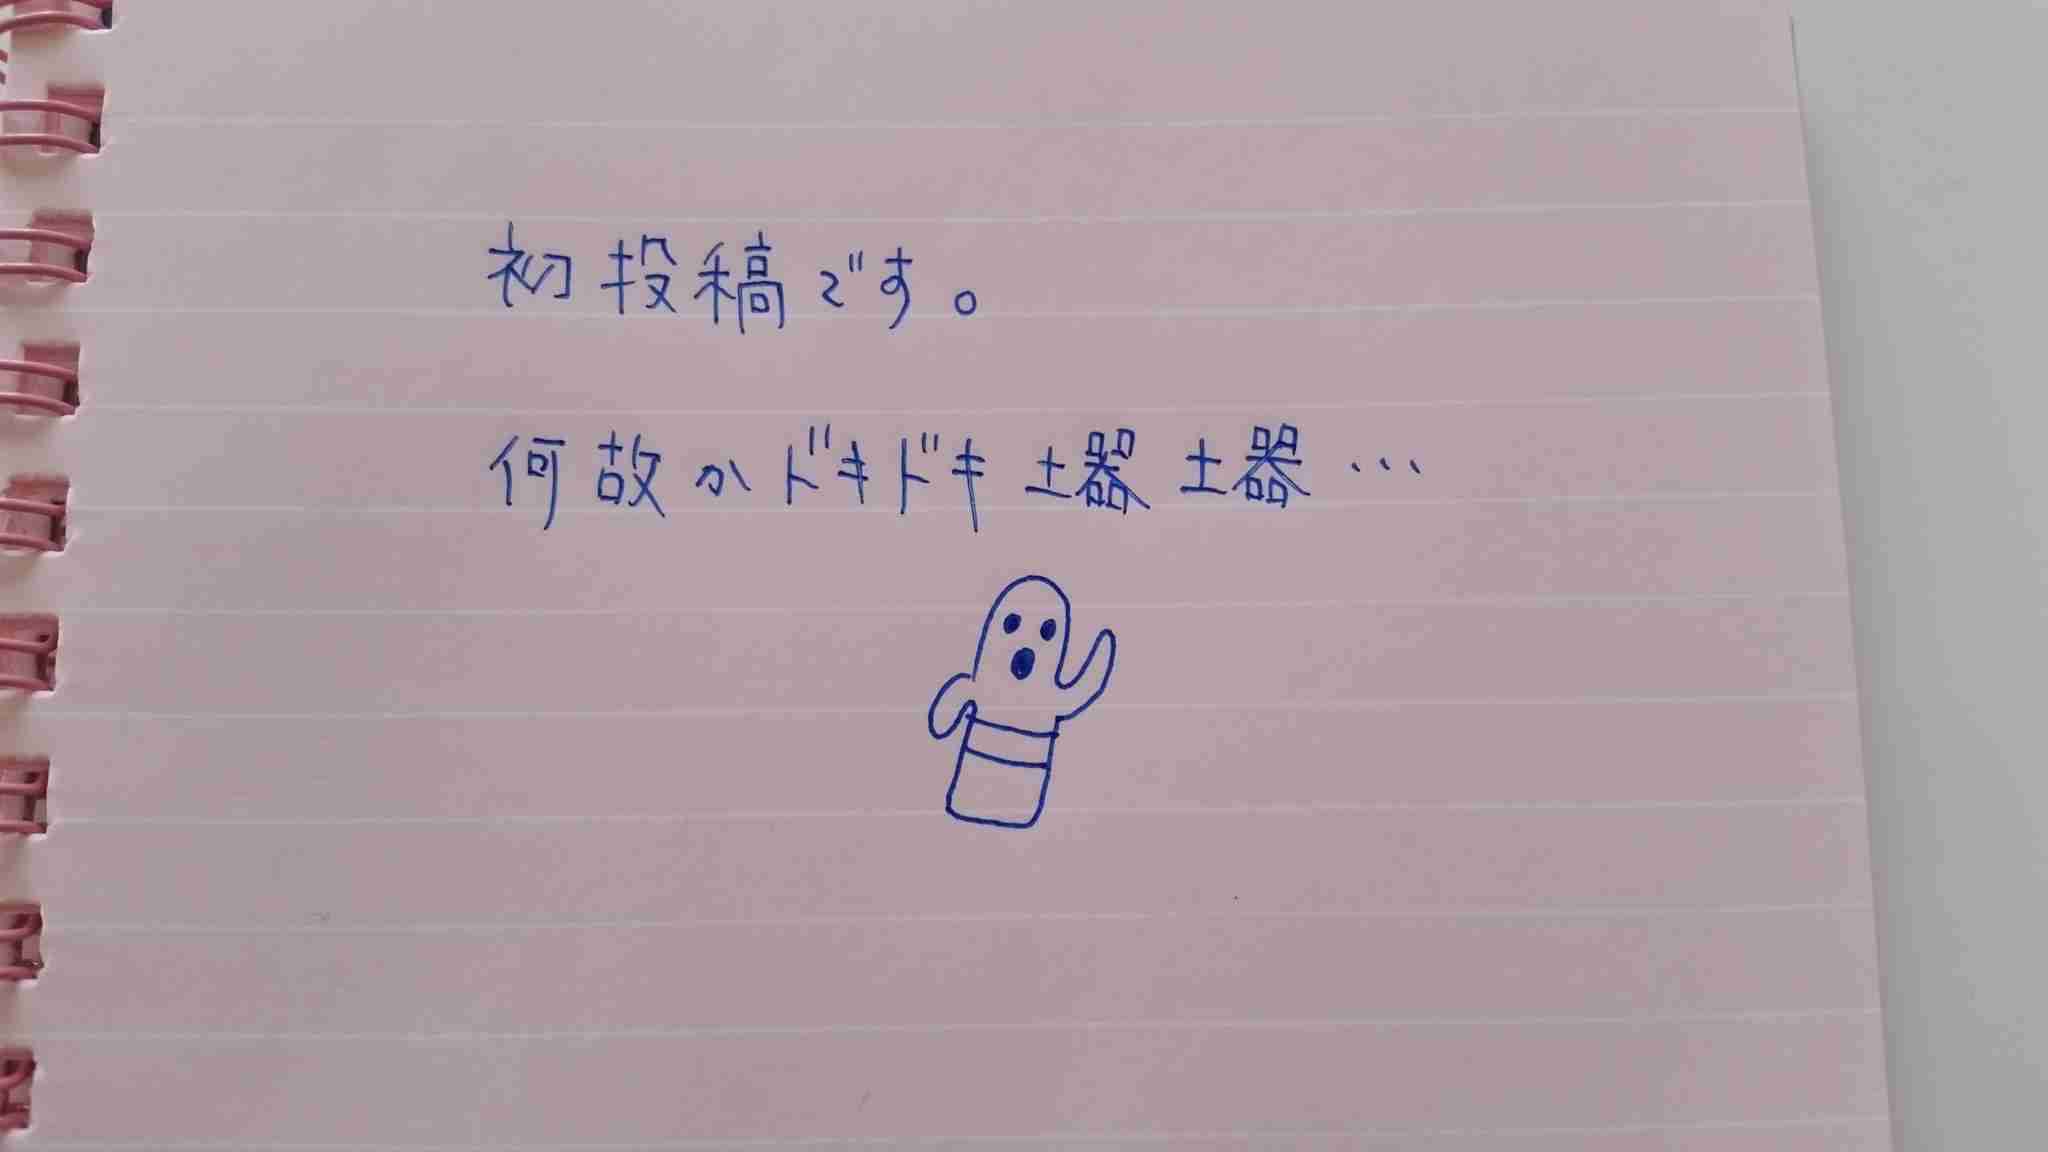 初投稿です。
何故かドキドキ土器土器…